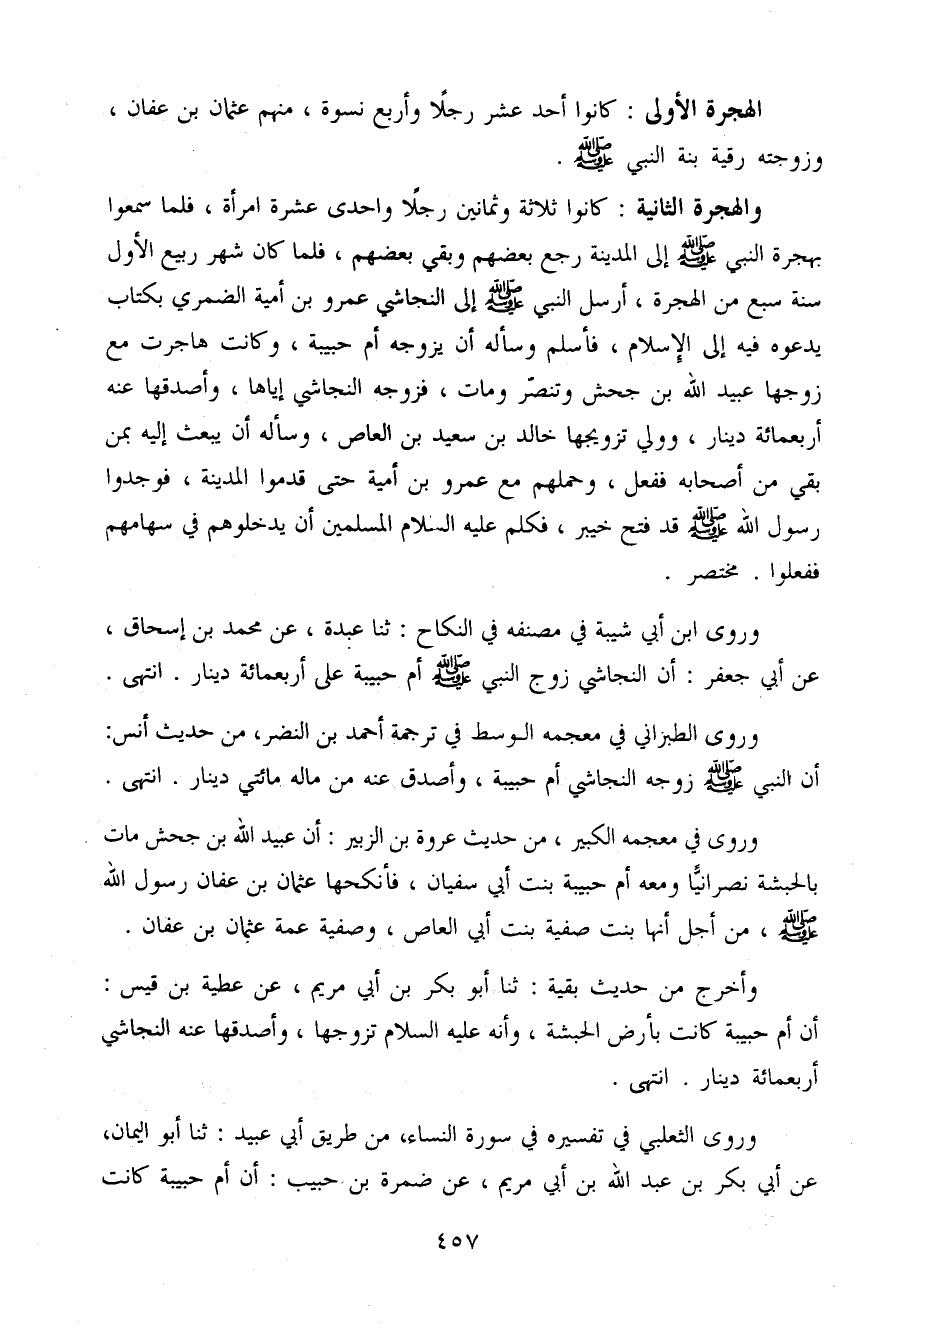 الهجرة الأولى : كانوا أحد عشر رجلًا وأربع نسوة ، منهم عثمان بن عفان ،
وزوجته رقية بنة النبي ﷺ .
والهجرة الثانية : كانوا ثلاثة وثمانين رجلًا واحدى عشرة امرأة ، فلما سمعوا
بهجرة النبي ﷺ إلى المدينة رجع بعضهم وبقي بعضهم ، فلما كان شهر ربيع الأول
سنة سبع من الهجرة ، أرسل النبي ﷺ إلى النجاشي عمرو بن أمية الضمري بكتاب
يدعوه فيه إلى الإسلام ، فأسلم وسأله أن يزوجه أم حبيبة ، وكانت هاجرت مع
زوجها عبيد الله بن جحش وتنصّر ومات ، فزوجه النجاشي إياها ، وأصدقها عنه
أربعمائة دينار ، وولي تزويجها خالد بن سعيد بن العاص ، وسأله أن يبعث إليه بمن
بقي من أصحابه ففعل ، وحملهم مع عمرو بن أمية حتى قدموا المدينة ، فوجدوا
رسول الله ﷺ قد فتح خيبر ، فكلم عليه السلام المسلمين أن يدخلوهم في سهامهم
ففعلوا . مختصر .
وروى ابن أبي شيبة في مصنفه في النكاح : ثنا عبدة ، عن محمد بن إسحاق ،
عن أبي جعفر : أن النجاشي زوج النبي ﷺ أم حبيبة على أربعمائة دينار . انتهى .
وروى الطبراني في معجمه الوسط في ترجمة أحمد بن النضر، من حديث أنس:
أن النبي ﷺ زوجه النجاشي أم حبيبة ، وأصدق عنه من ماله مائتي دينار . انتهى .
وروى في معجمه الكبير ، من حديث عروة بن الزبير : أن عبيد الله بن جحش مات
بالحبشة نصرانيًّا ومعه أم حبيبة بنت أبي سفيان ، فأنكحها عثمان بن عفان رسول الله
ﷺ ، من أجل أنها بنت صفية بنت أبي العاص ، وصفية عمة عثمان بن عفان .
وأخرج من حديث بقية : ثنا أبو بكر بن أبي مريم ، عن عطية بن قيس :
أن أم حبيبة كانت بأرض الحبشة ، وأنه عليه السلام تزوجها ، وأصدقها عنه النجاشي
أربعمائة دينار . انتهى .
وروى الثعلبي في تفسيره في سورة النساء، من طريق أبي عبيد : ثنا أبو اليمان،
عن أبي بكر بن عبد الله بن أبي مريم ، عن ضمرة بن حبيب : أن أم حبيبة كانت
٤٥٧